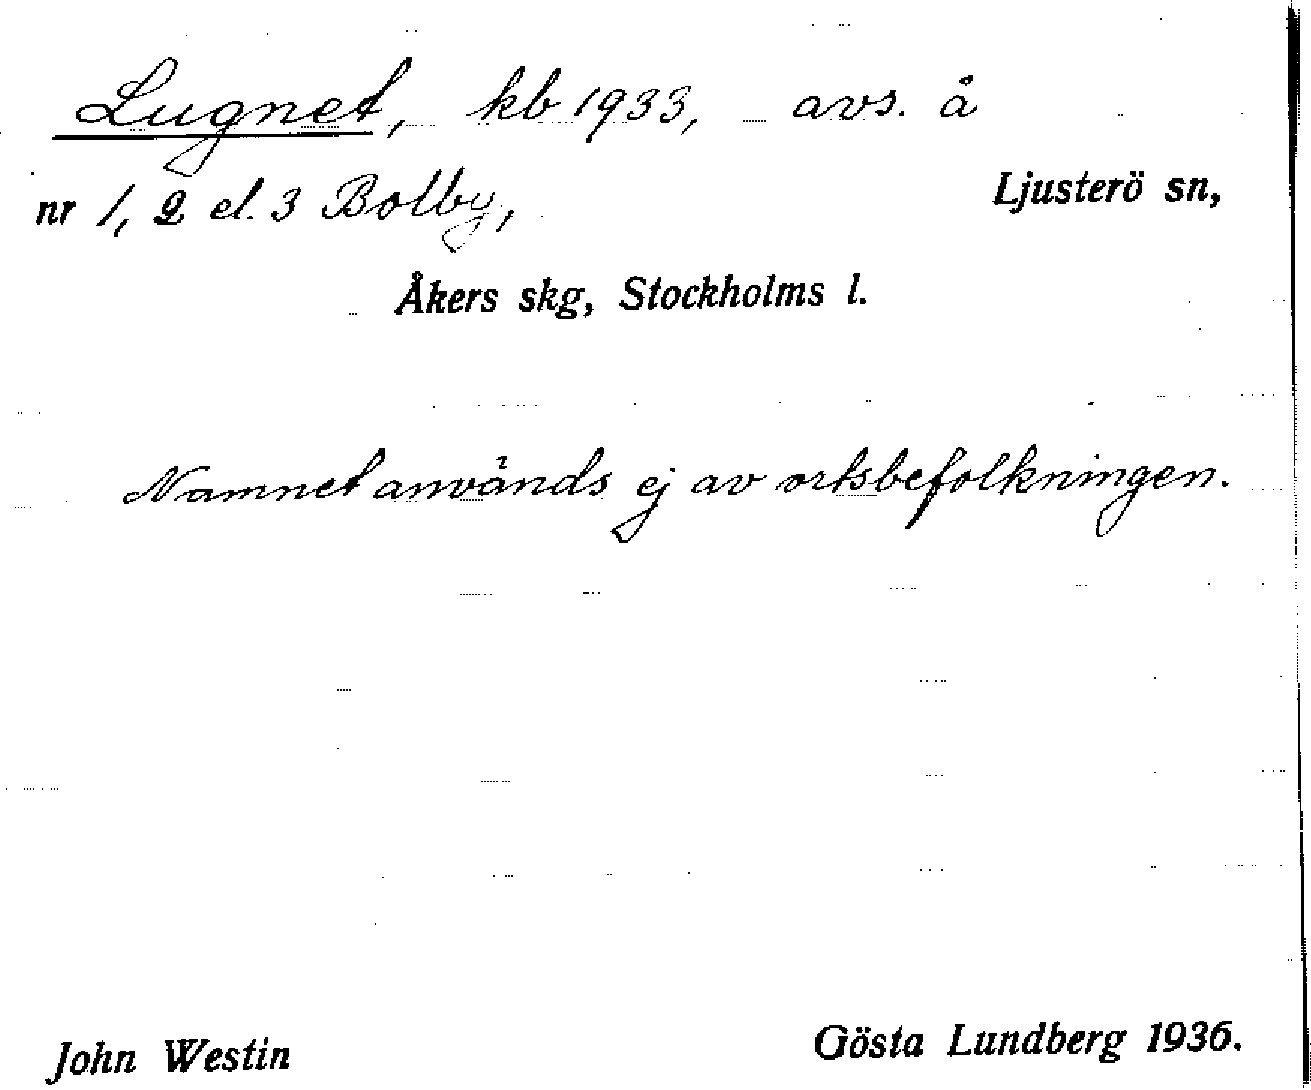 Lugnet, kb 1933, avs. å
nr 1, 2 el. 3 Bolby,
Ljusterö sn,
Åkers skg, Stockholms l.
Namnet används ej av ortsbefolkningen.
John Westin
Gösta Lundberg 1936.